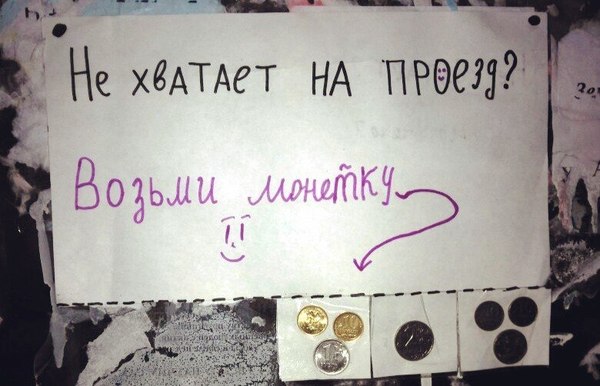 Не хватает на проезд?
Возьми монетку